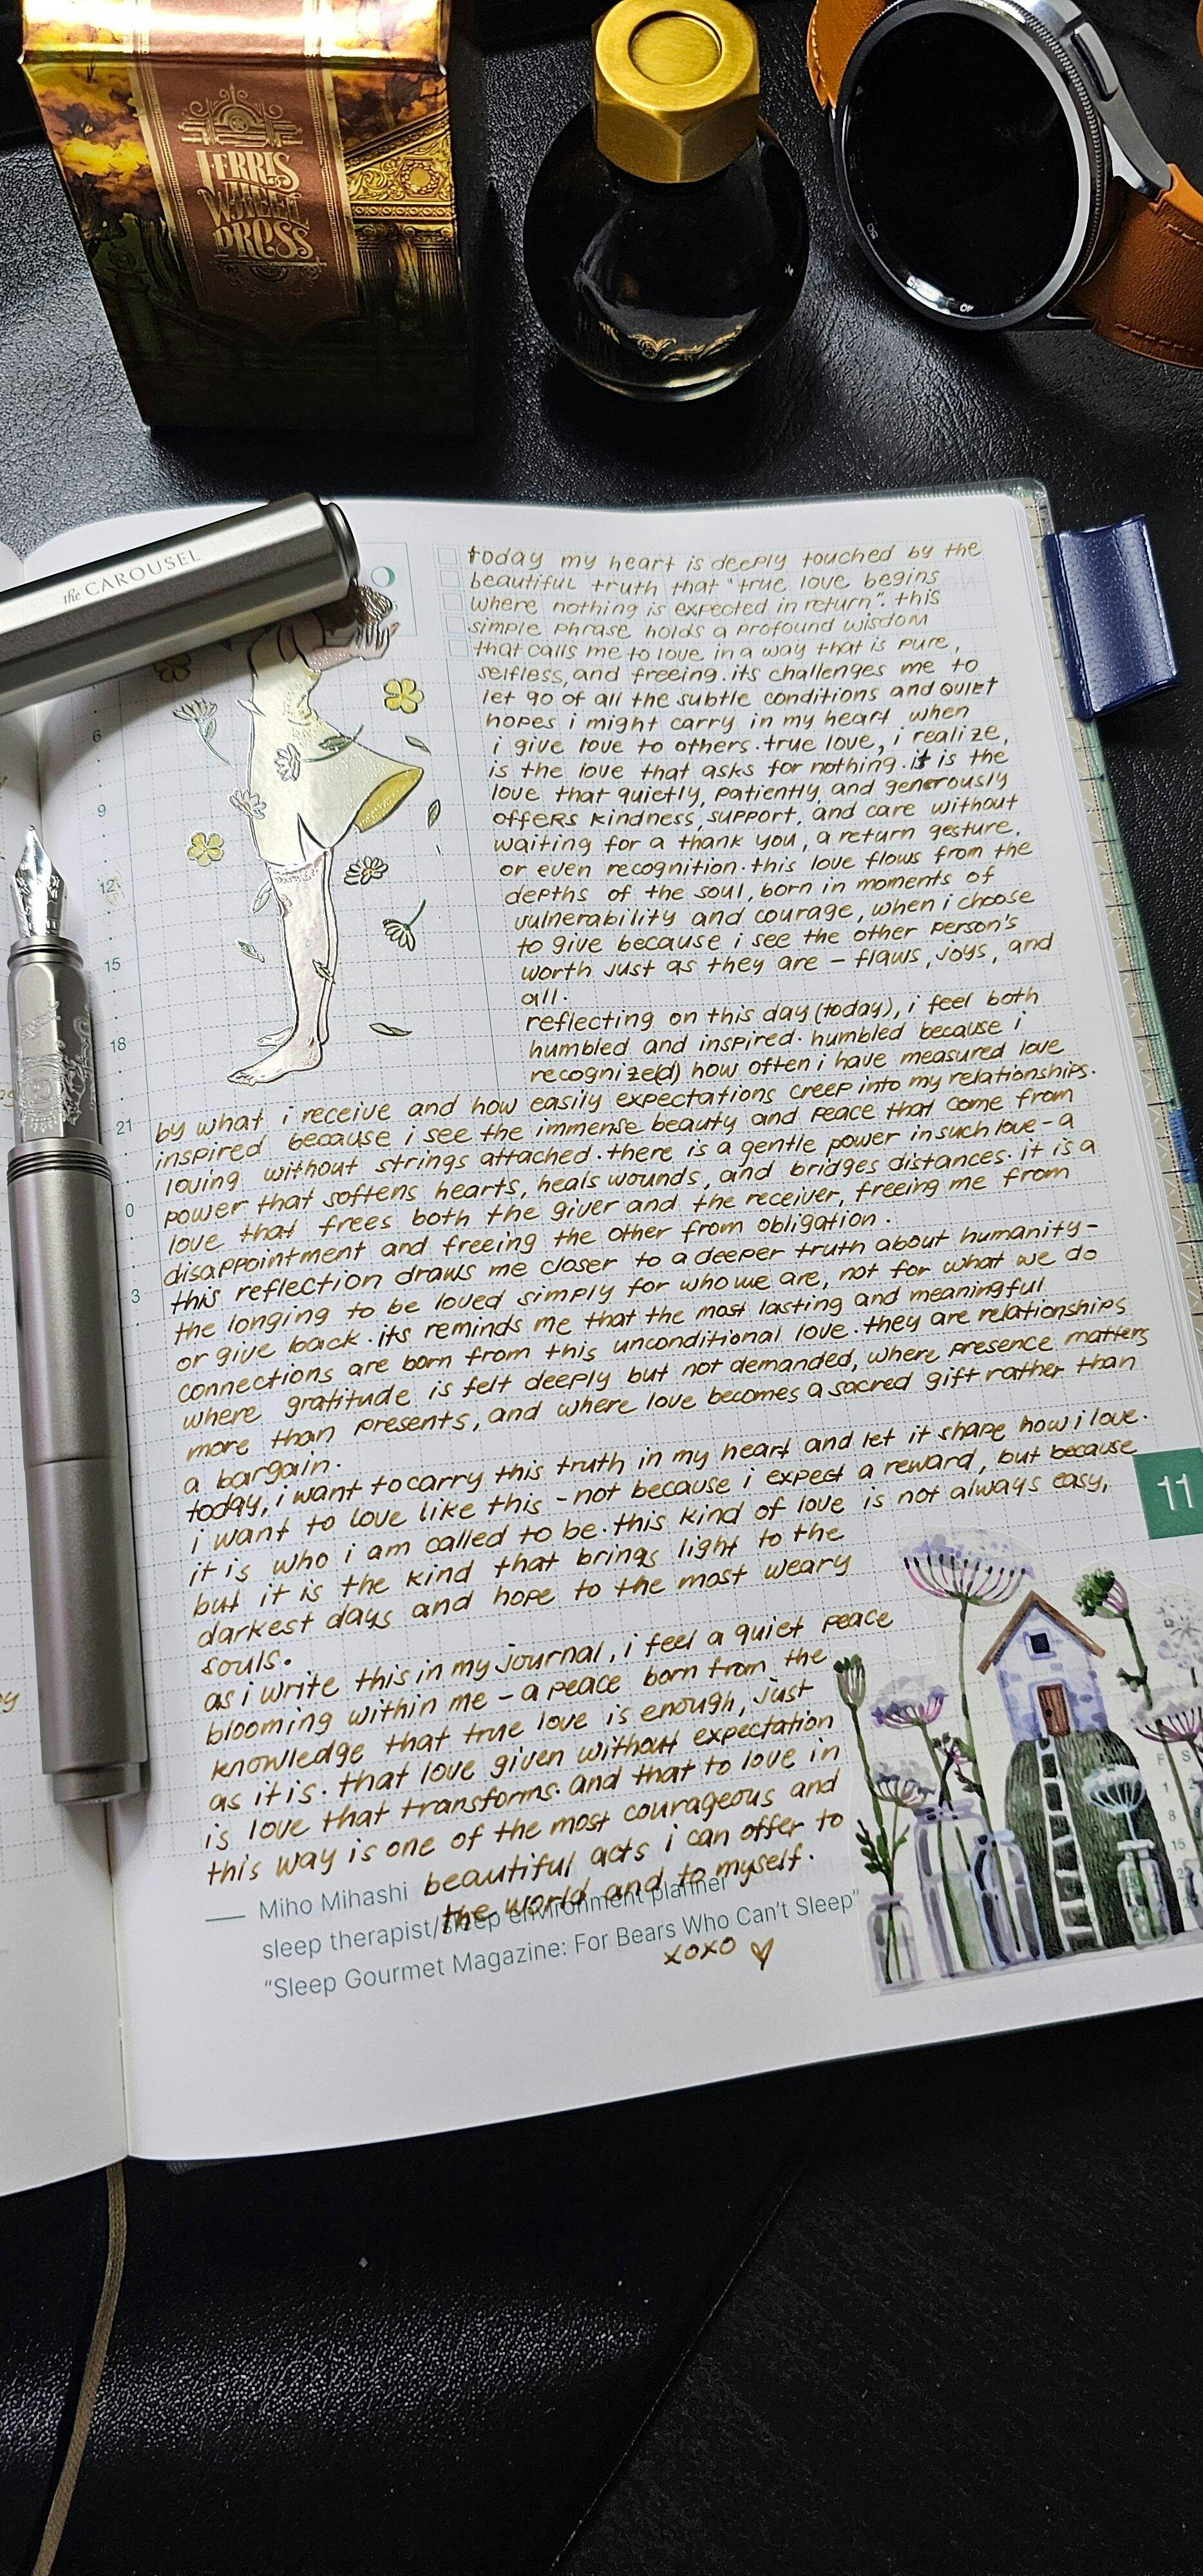 FERRIS
WHEEL
PRESS
the CAROUSEL
today my heart is deeply touched by the
beautiful truth that "true love begins
where nothing is expected in return". this
simple phrase holds a profound wisdom
that calls me to love in a way that is pure,
selfless, and freeing. its challenges me to
let go of all the subtle conditions and quiet
hopes i might carry in my heart when
i give love to others. true love, i realize,
is the love that asks for nothing. it is the
love that quietly, patiently, and generously
offers kindness, support, and care without
waiting for a thank you, a return gesture,
or even recognition. this love flows from the
depths of the soul, born in moments of
vulnerability and courage, when i choose
to give because i see the other person's
worth just as they are – flaws, joys, and
all.
reflecting on this day (today), i feel both
humbled and inspired. humbled because i
recognize(d) how often i have measured love
by what i receive and how easily expectations creep into my relationships.
inspired because i see the immense beauty and peace that come from
loving without strings attached. there is a gentle power in such love – a
power that softens hearts, heals wounds, and bridges distances. it is a
love that frees both the giver and the receiver, freeing me from
disappointment and freeing the other from obligation.
this reflection draws me closer to a deeper truth about humanity –
the longing to be loved simply for who we are, not for what we do
or give back. its reminds me that the most lasting and meaningful
connections are born from this unconditional love. they are relationships
where gratitude is felt deeply but not demanded, where presence matters
more than presents, and where love becomes a sacred gift rather than
a bargain.
today, i want to carry this truth in my heart and let it shape how i love.
i want to love like this – not because i expect a reward, but because
it is who i am called to be. this kind of love is not always easy,
but it is the kind that brings light to the
darkest days and hope to the most weary
souls.
as i write this in my journal, i feel a quiet peace
blooming within me – a peace born from the
knowledge that true love is enough, just
as it is. that love given without expectation
is love that transforms. and that to love in
this way is one of the most courageous and
beautiful acts i can offer to
the world and to myself.
xoxo ♡
6
9
12
15
18
21
0
3
11
— Miho Mihashi
sleep therapist/sleep environment planner
"Sleep Gourmet Magazine: For Bears Who Can't Sleep"
F S
1
8
15